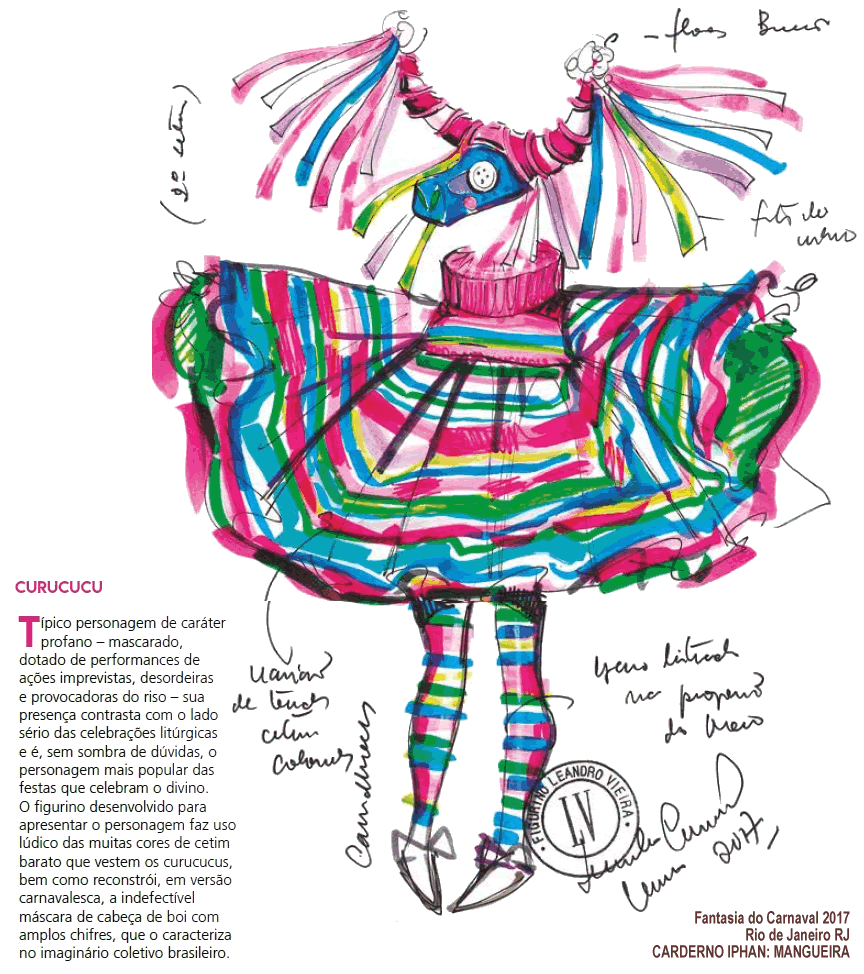 flores
(2º setor)
CURUCUCU
Típico personagem de caráter
profano – mascarado,
dotado de performances de
ações imprevistas, desordeiras
e provocadoras do riso – sua
presença contrasta com o lado
sério das celebrações litúrgicas
e é, sem sombra de dúvidas, o
personagem mais popular das
festas que celebram o divino.
O figurino desenvolvido para
apresentar o personagem faz uso
lúdico das muitas cores de cetim
barato que vestem os curucucus,
bem como reconstrói, em versão
carnavalesca, a indefectível
máscara de cabeça de boi com
amplos chifres, que o caracteriza
no imaginário coletivo brasileiro.
de
cetim
FIGURINO LEANDRO VIEIRA
LV
2017
Fantasia do Carnaval 2017
Rio de Janeiro RJ
CARDERNO IPHAN: MANGUEIRA